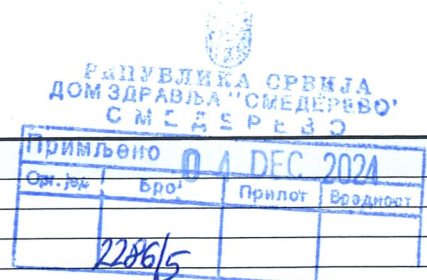 РЕПУБЛИКА СРБИЈА
ДОМ ЗДРАВЉА "СМЕДЕРЕВО"
СМЕДЕРЕВО
Примљено 04 DEC 2024
Орг. јед. Број Прилог Вредност
2286/5